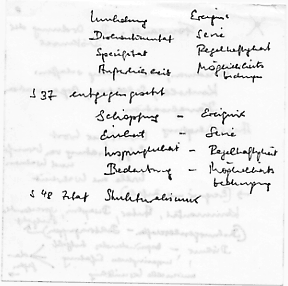 Umkehrung Ereignis
Diskontinuität Serie
Spezifität Regelhaftigkeit
Äußerlichkeit Möglichkeits
bedingung
S 37 entgegengesetzt
Schöpfung – Ereignis
Einheit – Serie
Ursprünglichkeit – Regelhaftigkeit
Bedeutung – Möglichkeits
bedingung
S 48 Zitat Strukturalismus